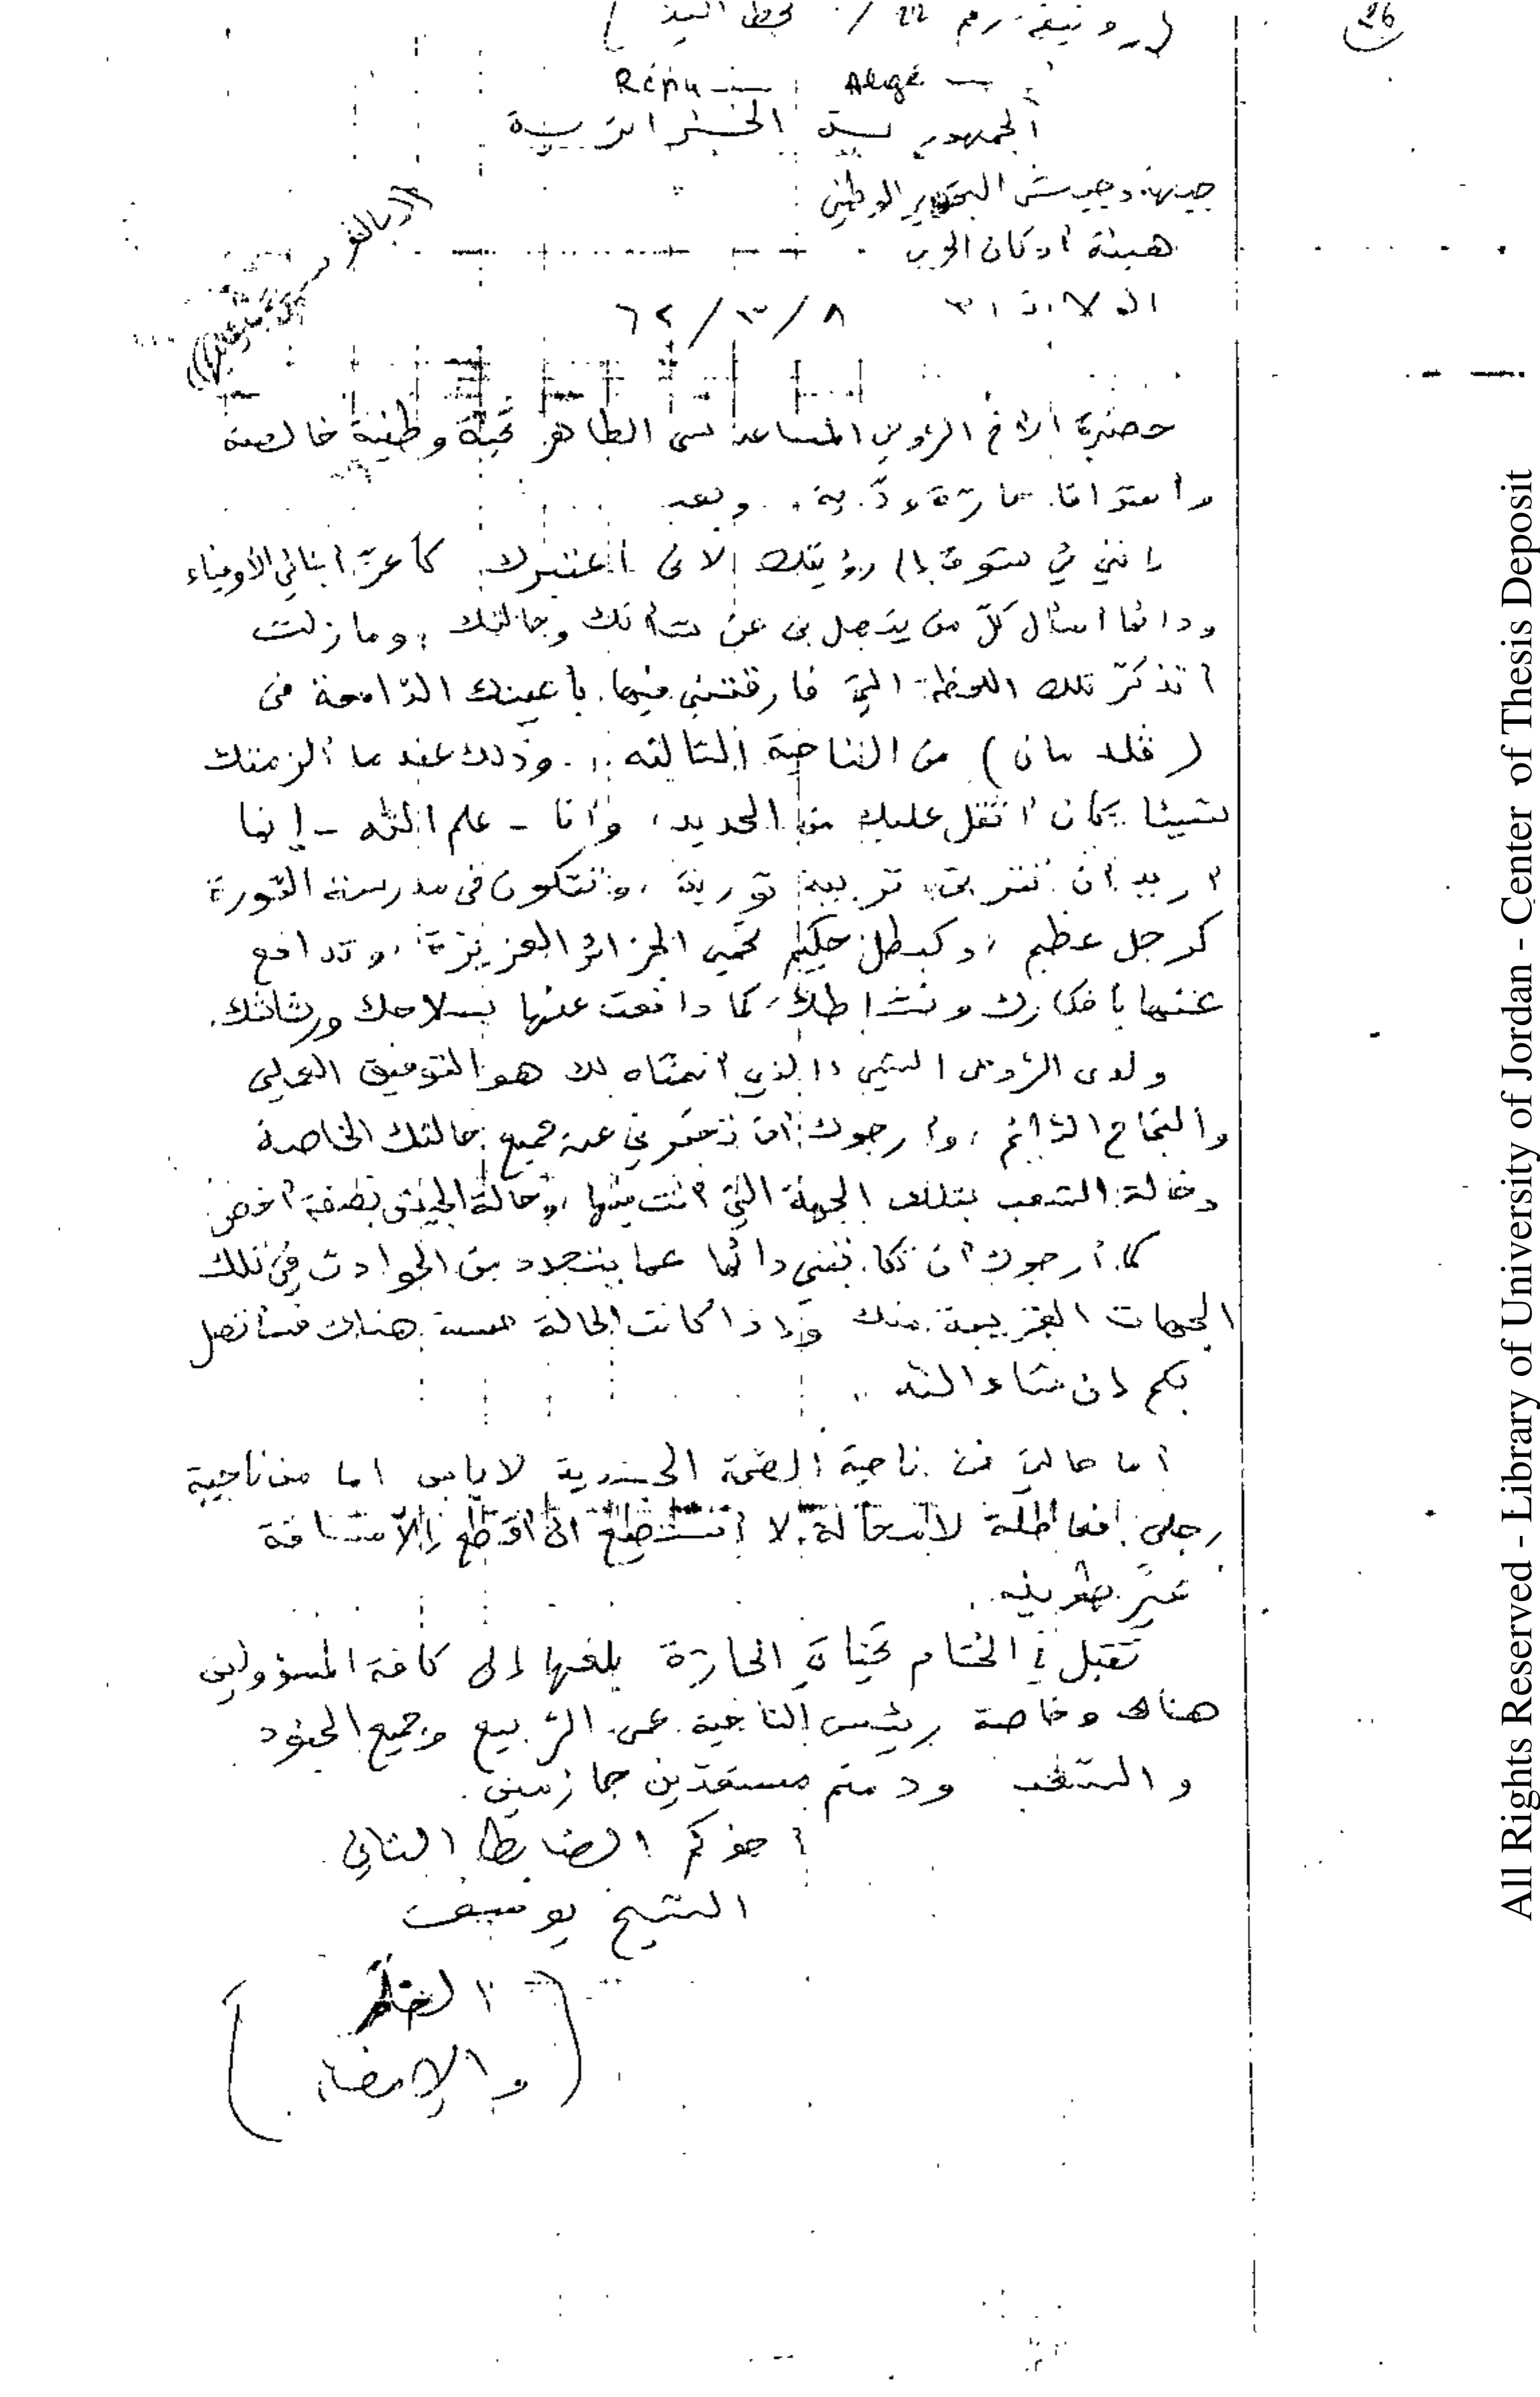 26
(وثيقة رقم 22 / بخط اليد)
Répu — Algé —
الجمهورية الجزائرية
جبهة وجيش التحرير الوطني
هيئة أركان الحرب
الولاية ٣ ٨/٣/٦٢
حضرة الأخ الرؤوس المساعد سي الطاهر تحية وطنية خالصة
واعتوافا حارة ودّية. وبعد
إنني في شوق إلى رؤيتك لأني اعتبرك كأعزّ ابنائي الأوفياء
ودائما اسأل كلّ من يتصل بي عن شأنك وحالتك، ومازلت
أتذكرّ تلك اللحظة التي فارقتني فيها بأعينك الدّامعة في
( ) من الناحية الثالثة.. وذلك عندما ألزمتك
شيئا كان أثقل عليك من الحديد، وأنا - علم الله - إنما
اريد أن تتربى تربية ثورية، وتتكون في مدرسة الثورة
كرجل عظيم، وكبطل حكيم تحمي الجزائر العزيزة، وتدافع
عنها بأفكارك ونشاطك، كما دافعت عنها بسلاحك ورشاشك.
ولدى الشيء الذي أتمناه لك هو التوفيق العملي
والنجاح الدّائم، وأرجوك أن تخبرني عن جميع حالتك الخاصة
وحالة الشعب بتلك الجهة التي أنت فيها، وحالة الجيش بصفة أخص
كما أرجوك أن تكاتبني دائما عما يتجدد من الحوادث في تلك
الجهات القريبة منك وإذا كانت الحالة حسنة هناك فسأتصل
بكم إن شاء الله ..
أما حالتي فمن ناحية الصّحة الجسدية لاباس اما من ناحية
رجلي لا أستطيع أن أقطع إلاّ مسافة
غير طويلة.
تقبل في الختام تحياتي الحارّة بلغها إلى كافة المسؤولين
هناك وخاصة رئيس الناحية عمي الرّبيع وجميع الجنود
والشعب ودمتم مستعدّين حازمين.
أخوكم الضابط الثاني
الشيخ يوسف
(الختم
والإمضاء)
All Rights Reserved - Library of University of Jordan - Center of Thesis Deposit